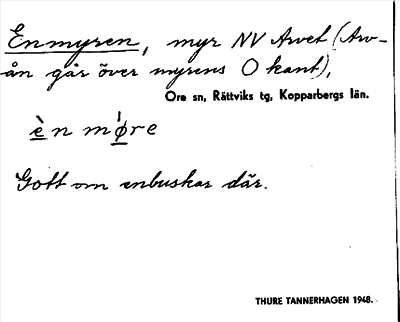 Enmyren, myr NV Arvet (Arv-
ån går över myrens O kant),
Ore sn, Rättviks tg, Kopparbergs län.
èn mǿre
Gott om enbuskar där.
THURE TANNERHAGEN 1948.